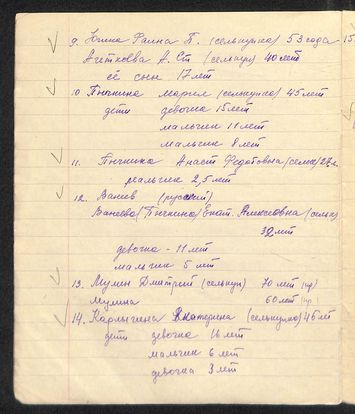 9. Юнина Фаина П. (селькупка) 53 года
А. Ст (селькуп) 40 лет
её сын 17 лет
10 Пычкина Мария (селькупка) 45 лет
дети девочка 15 лет
мальчик 11 лет
мальчик 8 лет
11. Пычкина Анаст Федотовна (селька) 27 л.
мальчик 2,5 лет
12. Ванев (русский)
Ванева/Пычкина/Екат. Алексеевна (сельк)
32 лет
девочка - 11 лет
мальчик 5 лет
13. Мулин Дмитрий (селькуп) 70 лет
Мулина 60 лет
14. Карлыгина Екатерина (селькупка) 45 лет
дети девочка 16 лет
мальчик 6 лет
девочка 3 лет